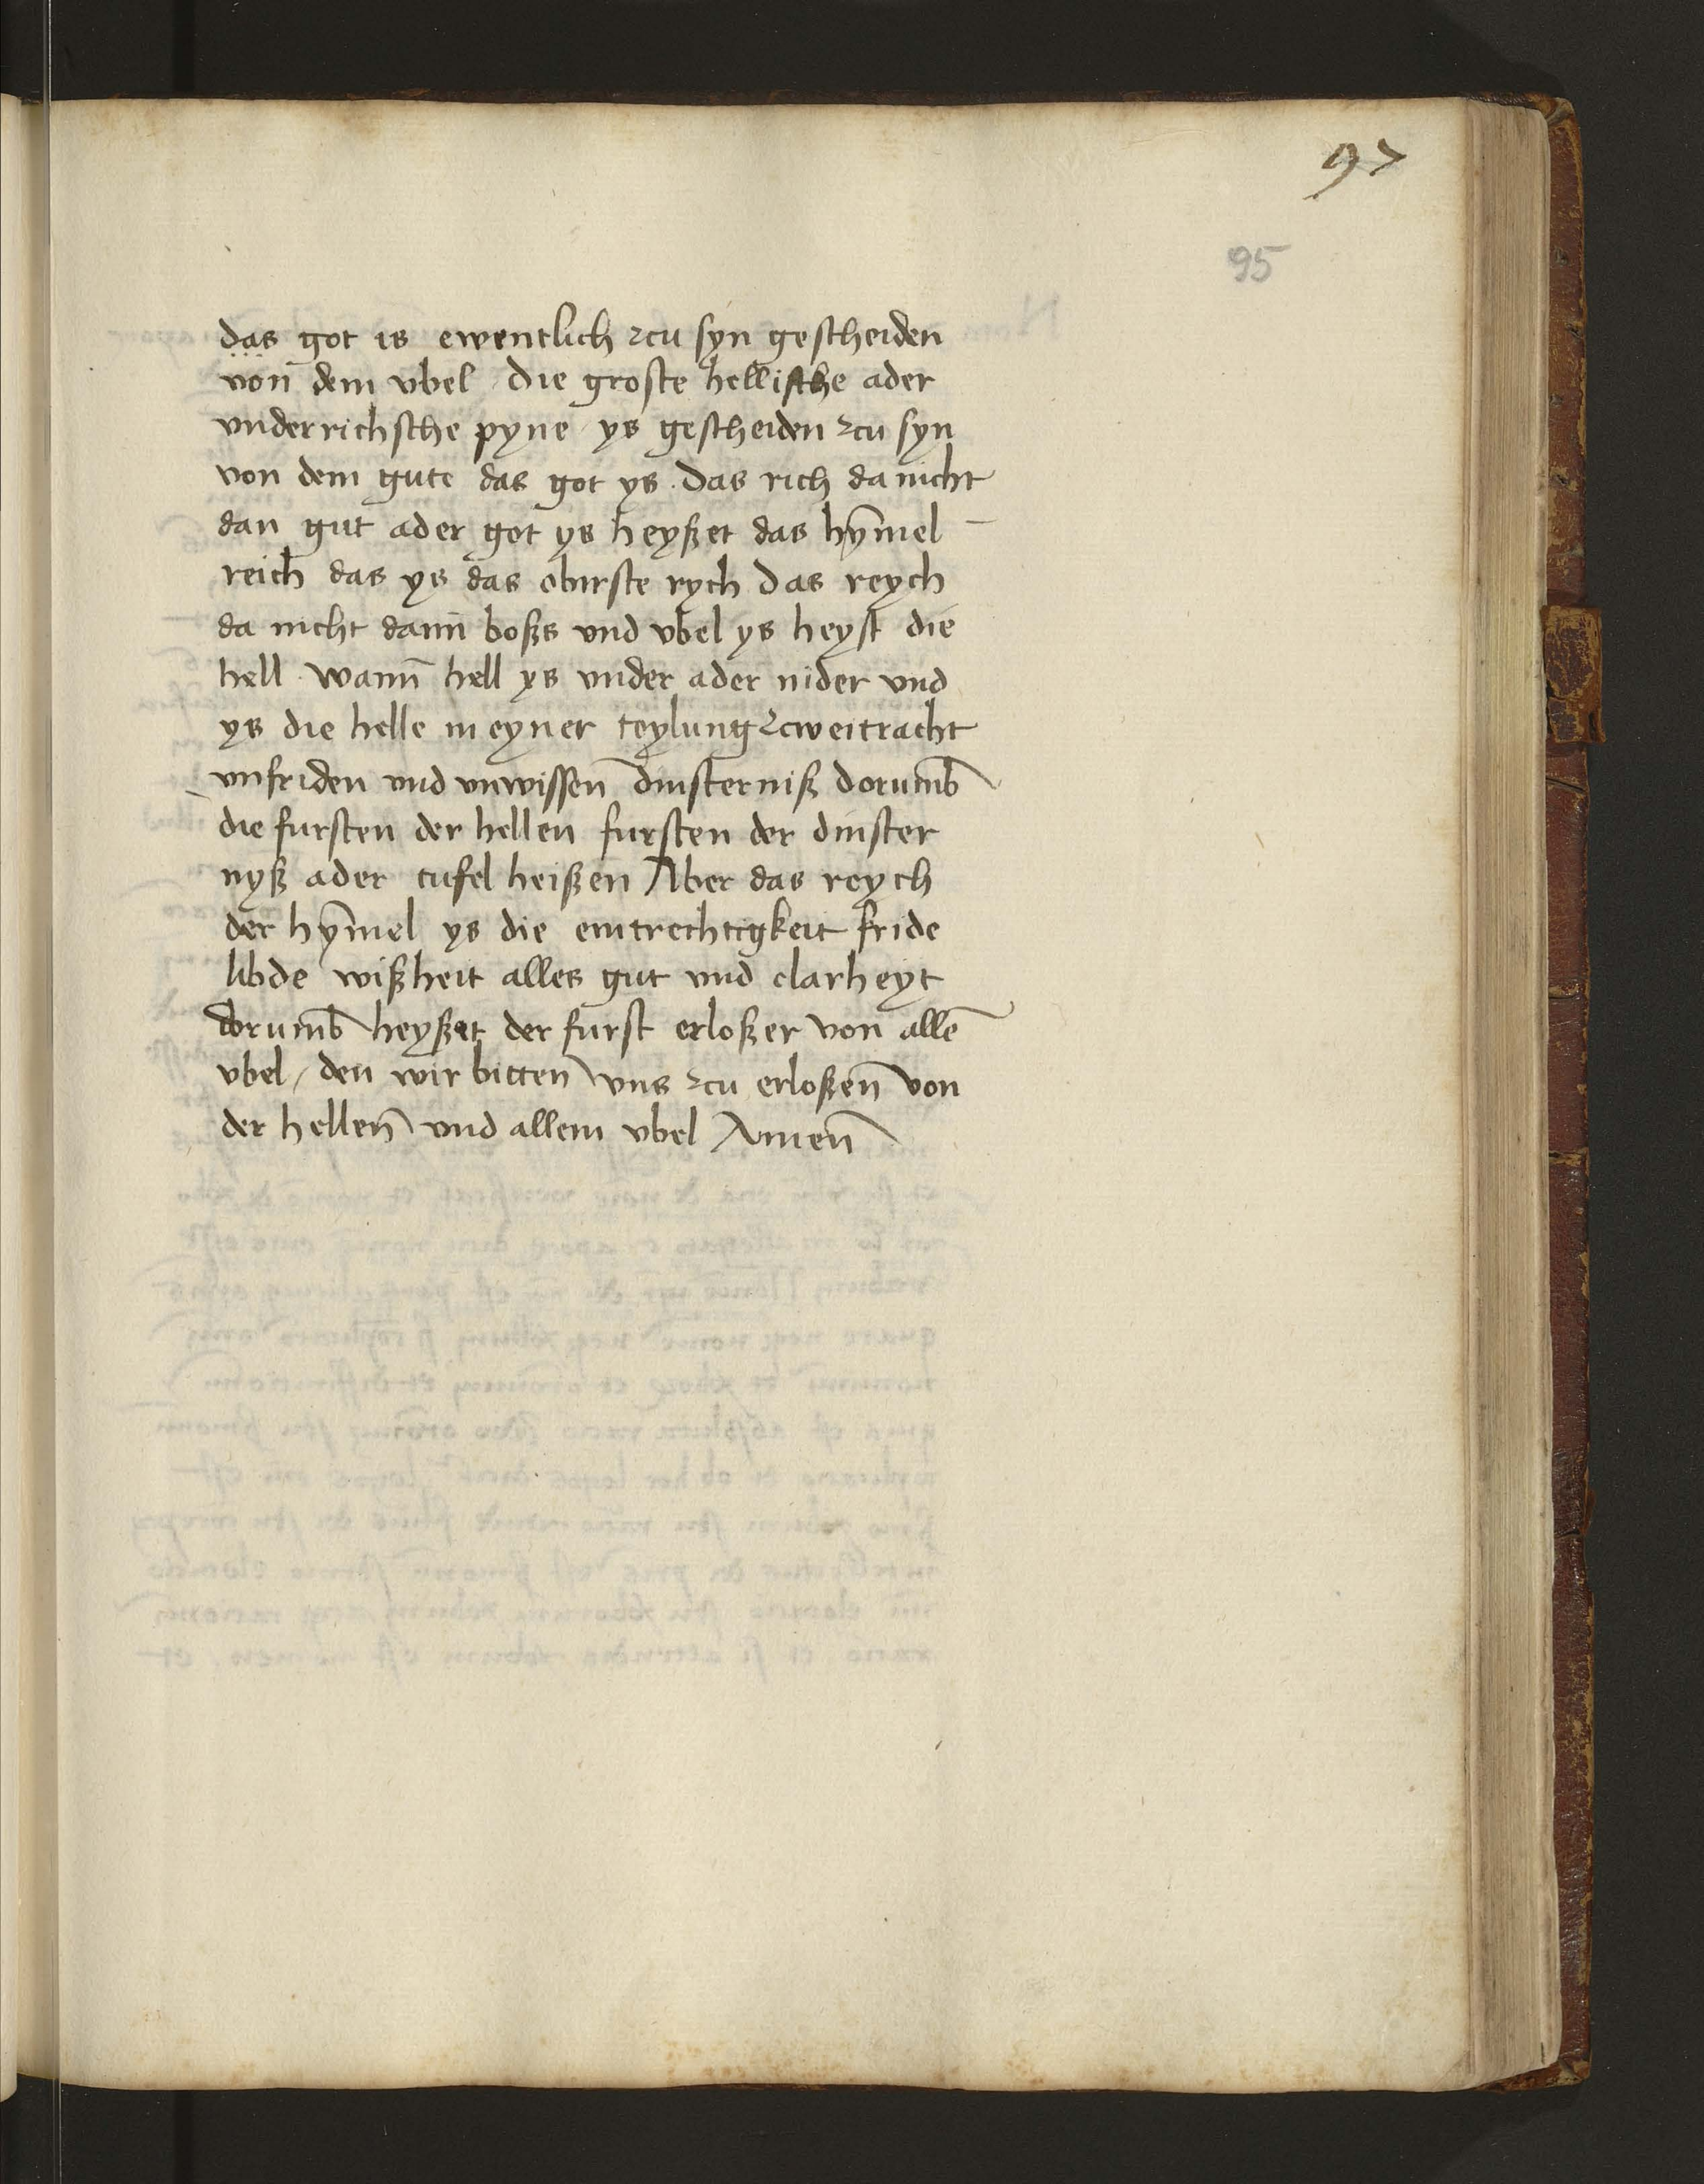 97
95
das got is ewentlich zcu syn gescheiden
von dem vbel die groste hellische ader
vnderrichsche pyne ys gescheiden zcu syn
von dem gute das got ys. Das rich da nicht
dan gut ader got ys heyßet das hȳmel
reich das ys das obirste rych Das reych
da nicht dann boßs vnd vbel ys heyst die
hell. wann hell ys vnder ader nider vnd
ys die helle in eyner teylung zcweitracht
vnfriden vnd vnwissen dinsterniß dorumb
die fursten der hellen fursten der dinster
nyß ader tufel heißen Aber das reych
der hȳmel ys die eintrechtigkeit fride
libde wißheit alles gut vnd clarheyt
dorumb heyßet der furst erloßer von allē
vbel / den wir bitten vns zcu erloßen von
der hellen vnd allem vbel Amen